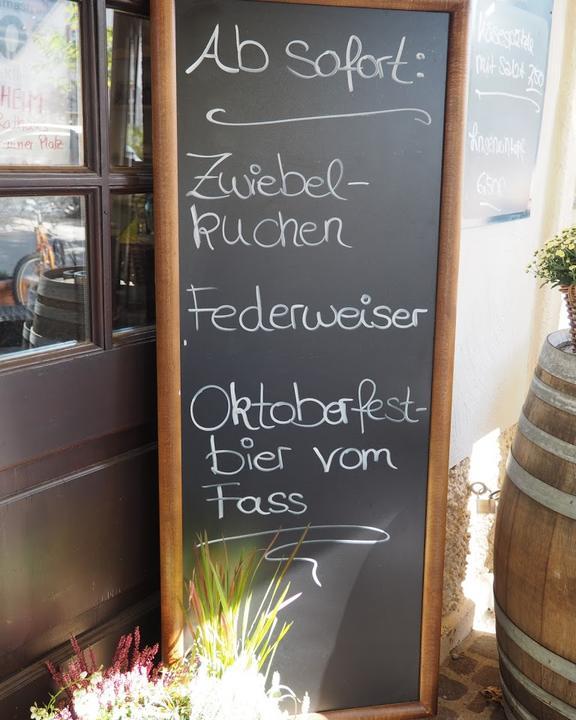 Ab sofort:
Zwiebel-
kuchen
Federweiser
Oktoberfest-
bier vom
Fass
Käsespätzle
mit Salat 7,50
6,50
HEIM
Platz